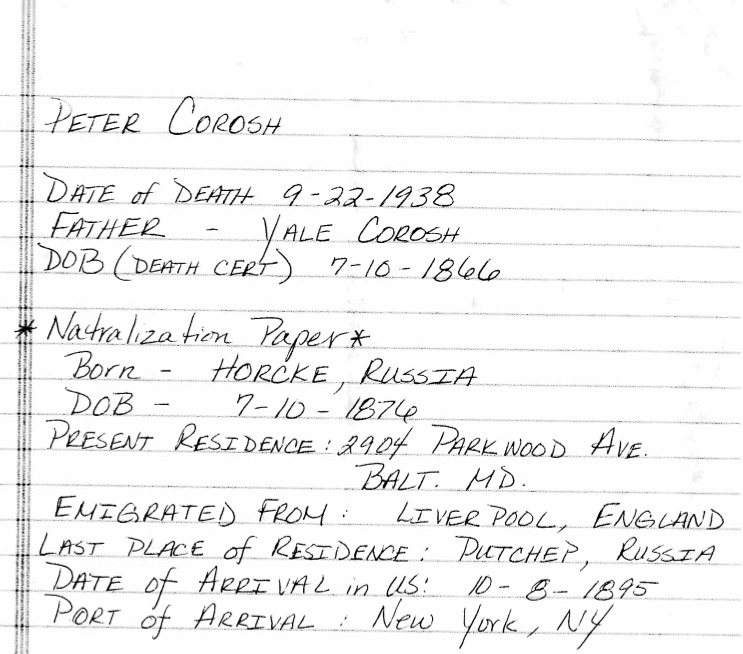 PETER COROSH
DATE of DEATH 9-22-1938
FATHER - YALE COROSH
DOB (DEATH CERT) 7-10-1866
* Natralization Paper *
Born - HORCKE, RUSSIA
DOB - 7-10-1876
PRESENT RESIDENCE: 2904 PARKWOOD AVE.
BALT. MD.
EMIGRATED FROM: LIVERPOOL, ENGLAND
LAST PLACE of RESIDENCE: PUTCHEP, RUSSIA
DATE of ARRIVAL in US: 10-8-1895
PORT of ARRIVAL: New York, NY